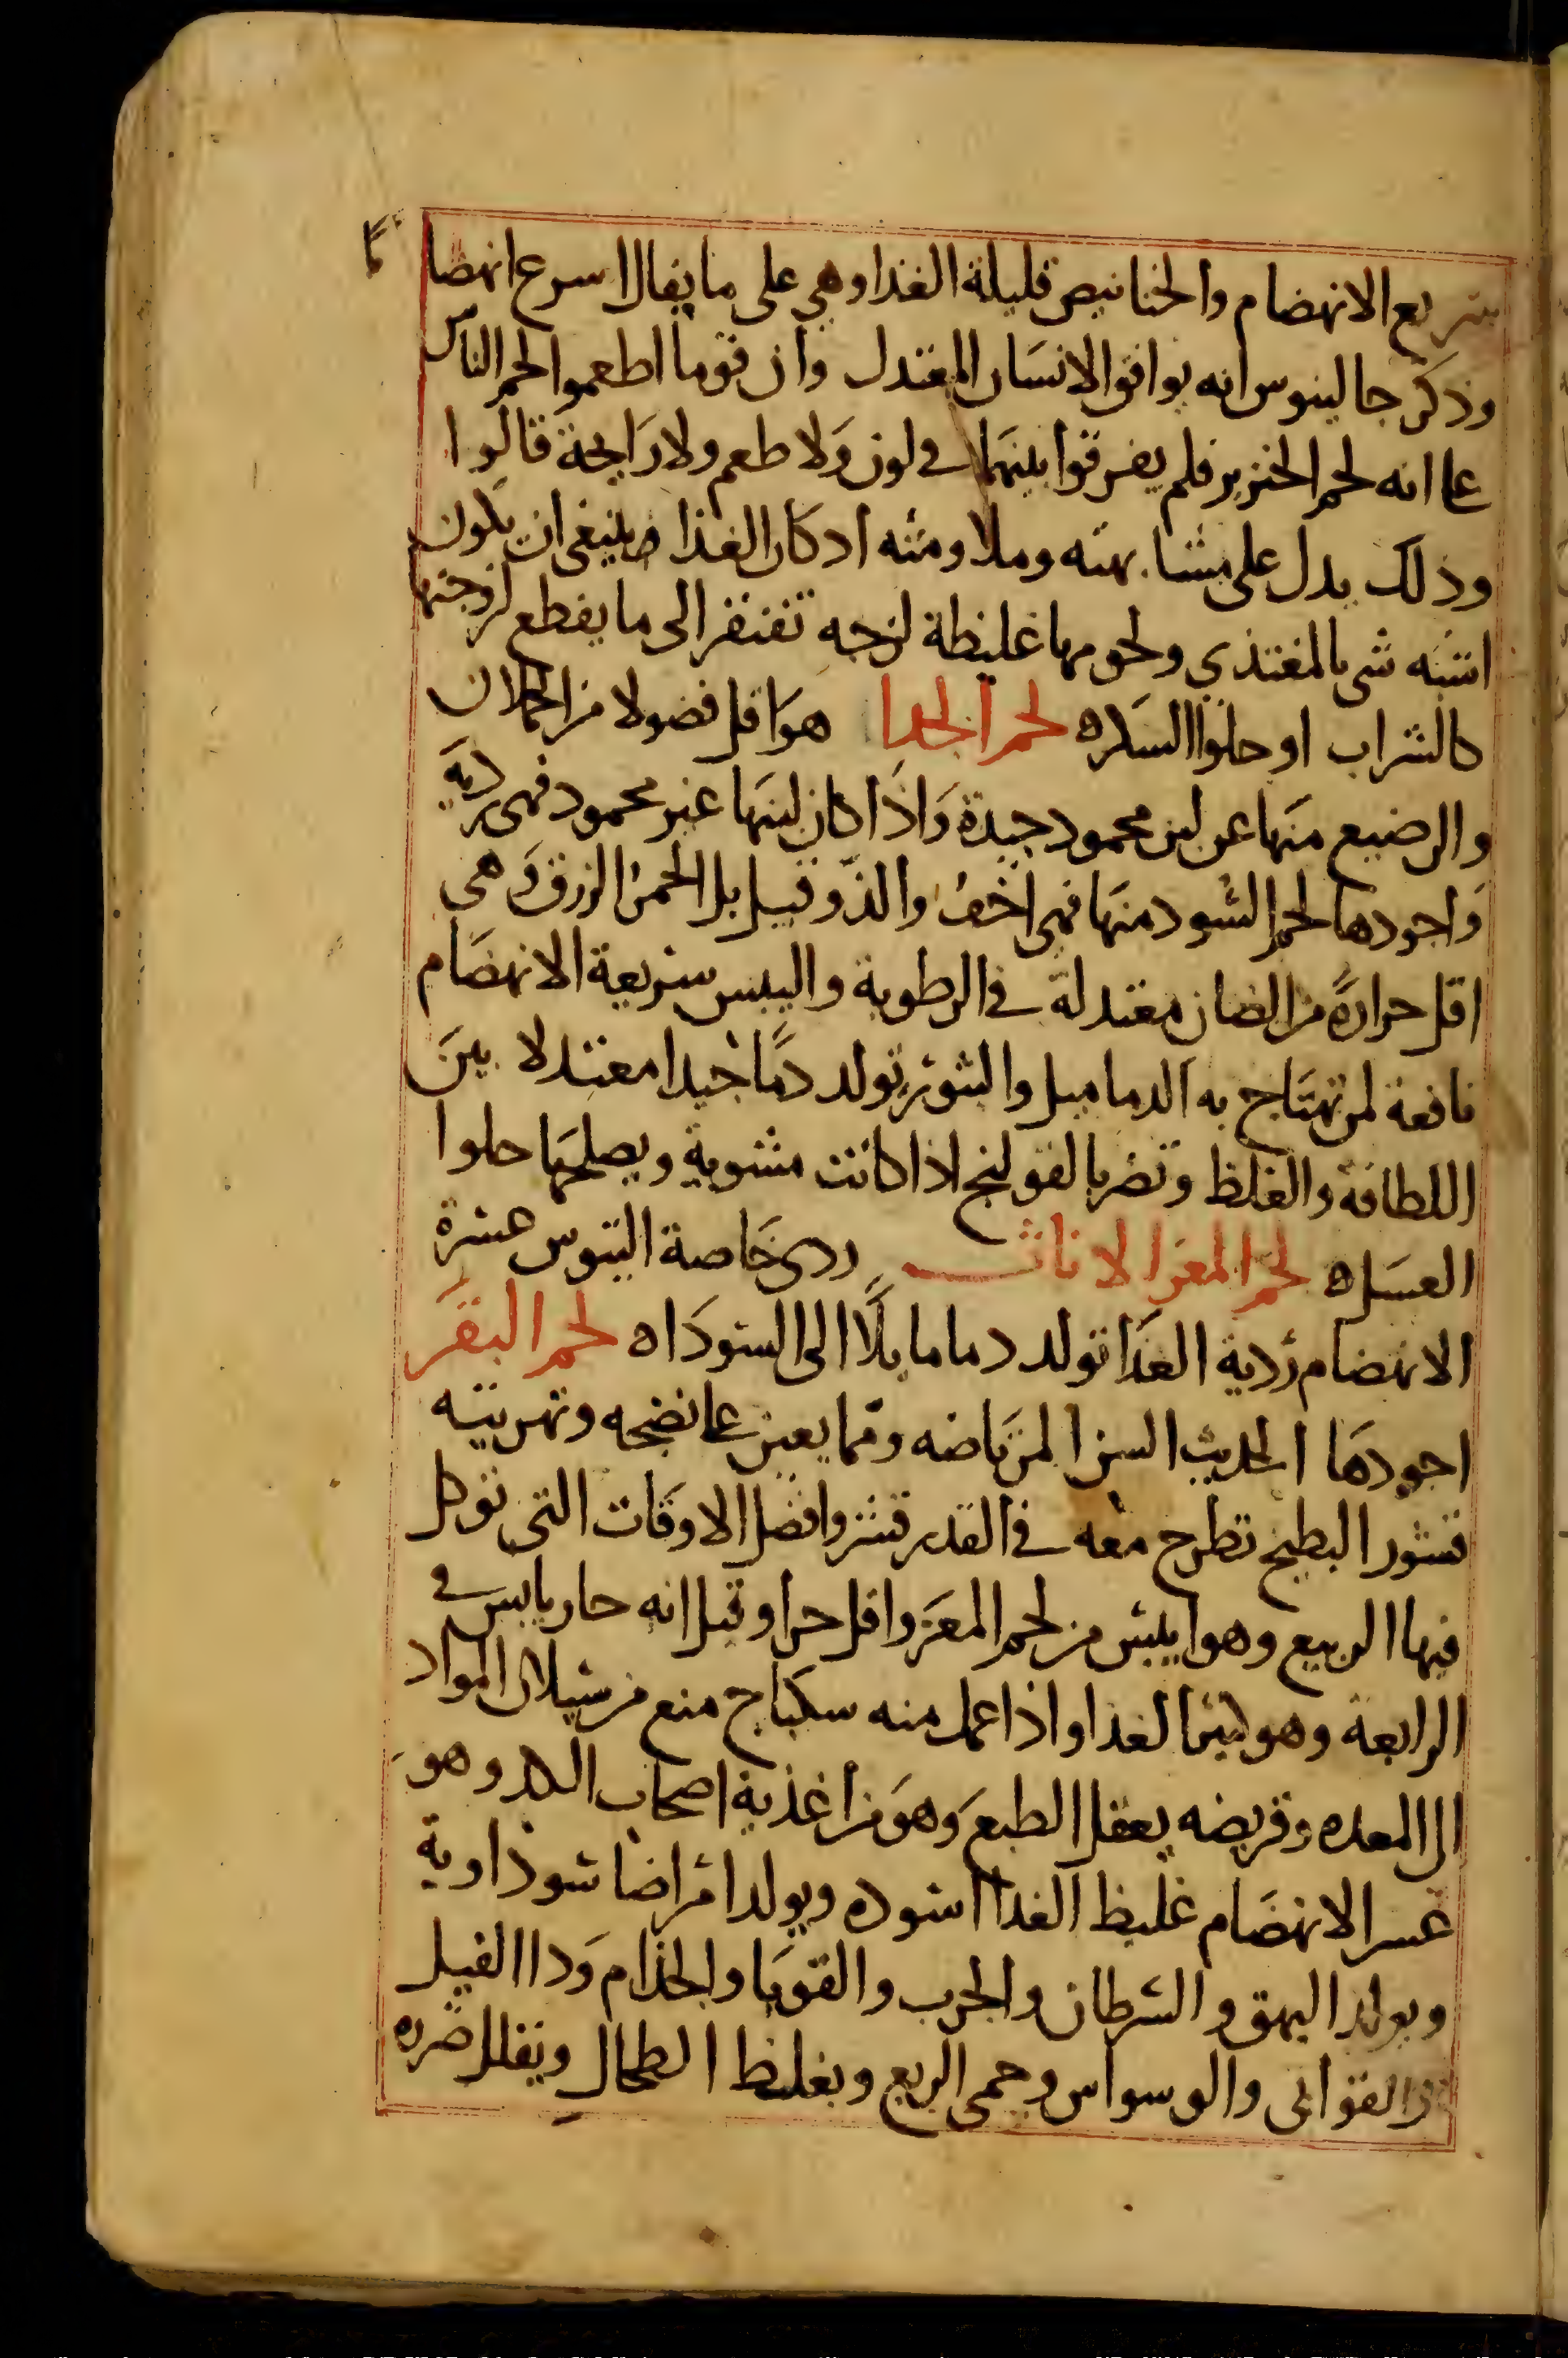 سريع الانهضام والخنانيص قليلة الغذا وهي على ما يقال اسرع انهضاما
وذكر جالينوس انه يوافق الانسان المعتدل وان قوما اطعموا لحم الناس
على انه لحم الخنزير فلم يفرقوا بينهما في لون ولا طعم ولا رايحة قالوا
وذلك يدل على مشابهته وملاومته اذ كان الغذا ينبغي ان يكون
اشبه شي بالمغتذي ولحومها غليظة لزجه تفتقر الى ما يقطع لزوجتها
كالشراب او حلوا السكر ه لحم الجدا هو اقل فضولا من الحملان
والرضيع منها عن لبن محمود جيدة واذا كان لبنها غير محمود فهى رديه
واجودها لحم السود منها فهى اخف والذ وقيل بل الحمر الزرق وهى
اقل حرارة من الضان معتدلة في الرطوبة واليبس سريعة الانهضام
نافعة لمن تهتاج به الدماميل والبثور تولد دما جيدا معتدلا بين
اللطافة والغلظ وتضر بالقولنج اذا كانت مشوية ويصلحها حلوا
العسل ه لحم المعز الاناث ردى خاصة التيوس عسرة
الانهضام ردية الغذا تولد دما مايلا الى السودا ه لحم البقر
اجودها الحديث السن المرتاضه ومما يعين على نضجه وتهريته
قشور البطيخ تطرح معه في القدر قشر وافضل الاوقات التى توكل
فيها الربيع وهو ايبس من لحم المعز واقل حرا وقيل انه حار يابس في
الرابعة وهو كثير الغذا واذا عمل منه سكباج منع من سيلان المواد
الى المعده وقريضه يعقل الطبع وهو من اغذية اصحاب الكد وهو
عسر الانهضام غليظ الغذا اسوده ويولد امراضا سوداوية
ويولد البهق والسرطان والجرب والقوبا والجذام ودا الفيل
والوسواس وحمى الربع ويغلظ الطحال ويقلل ضرره